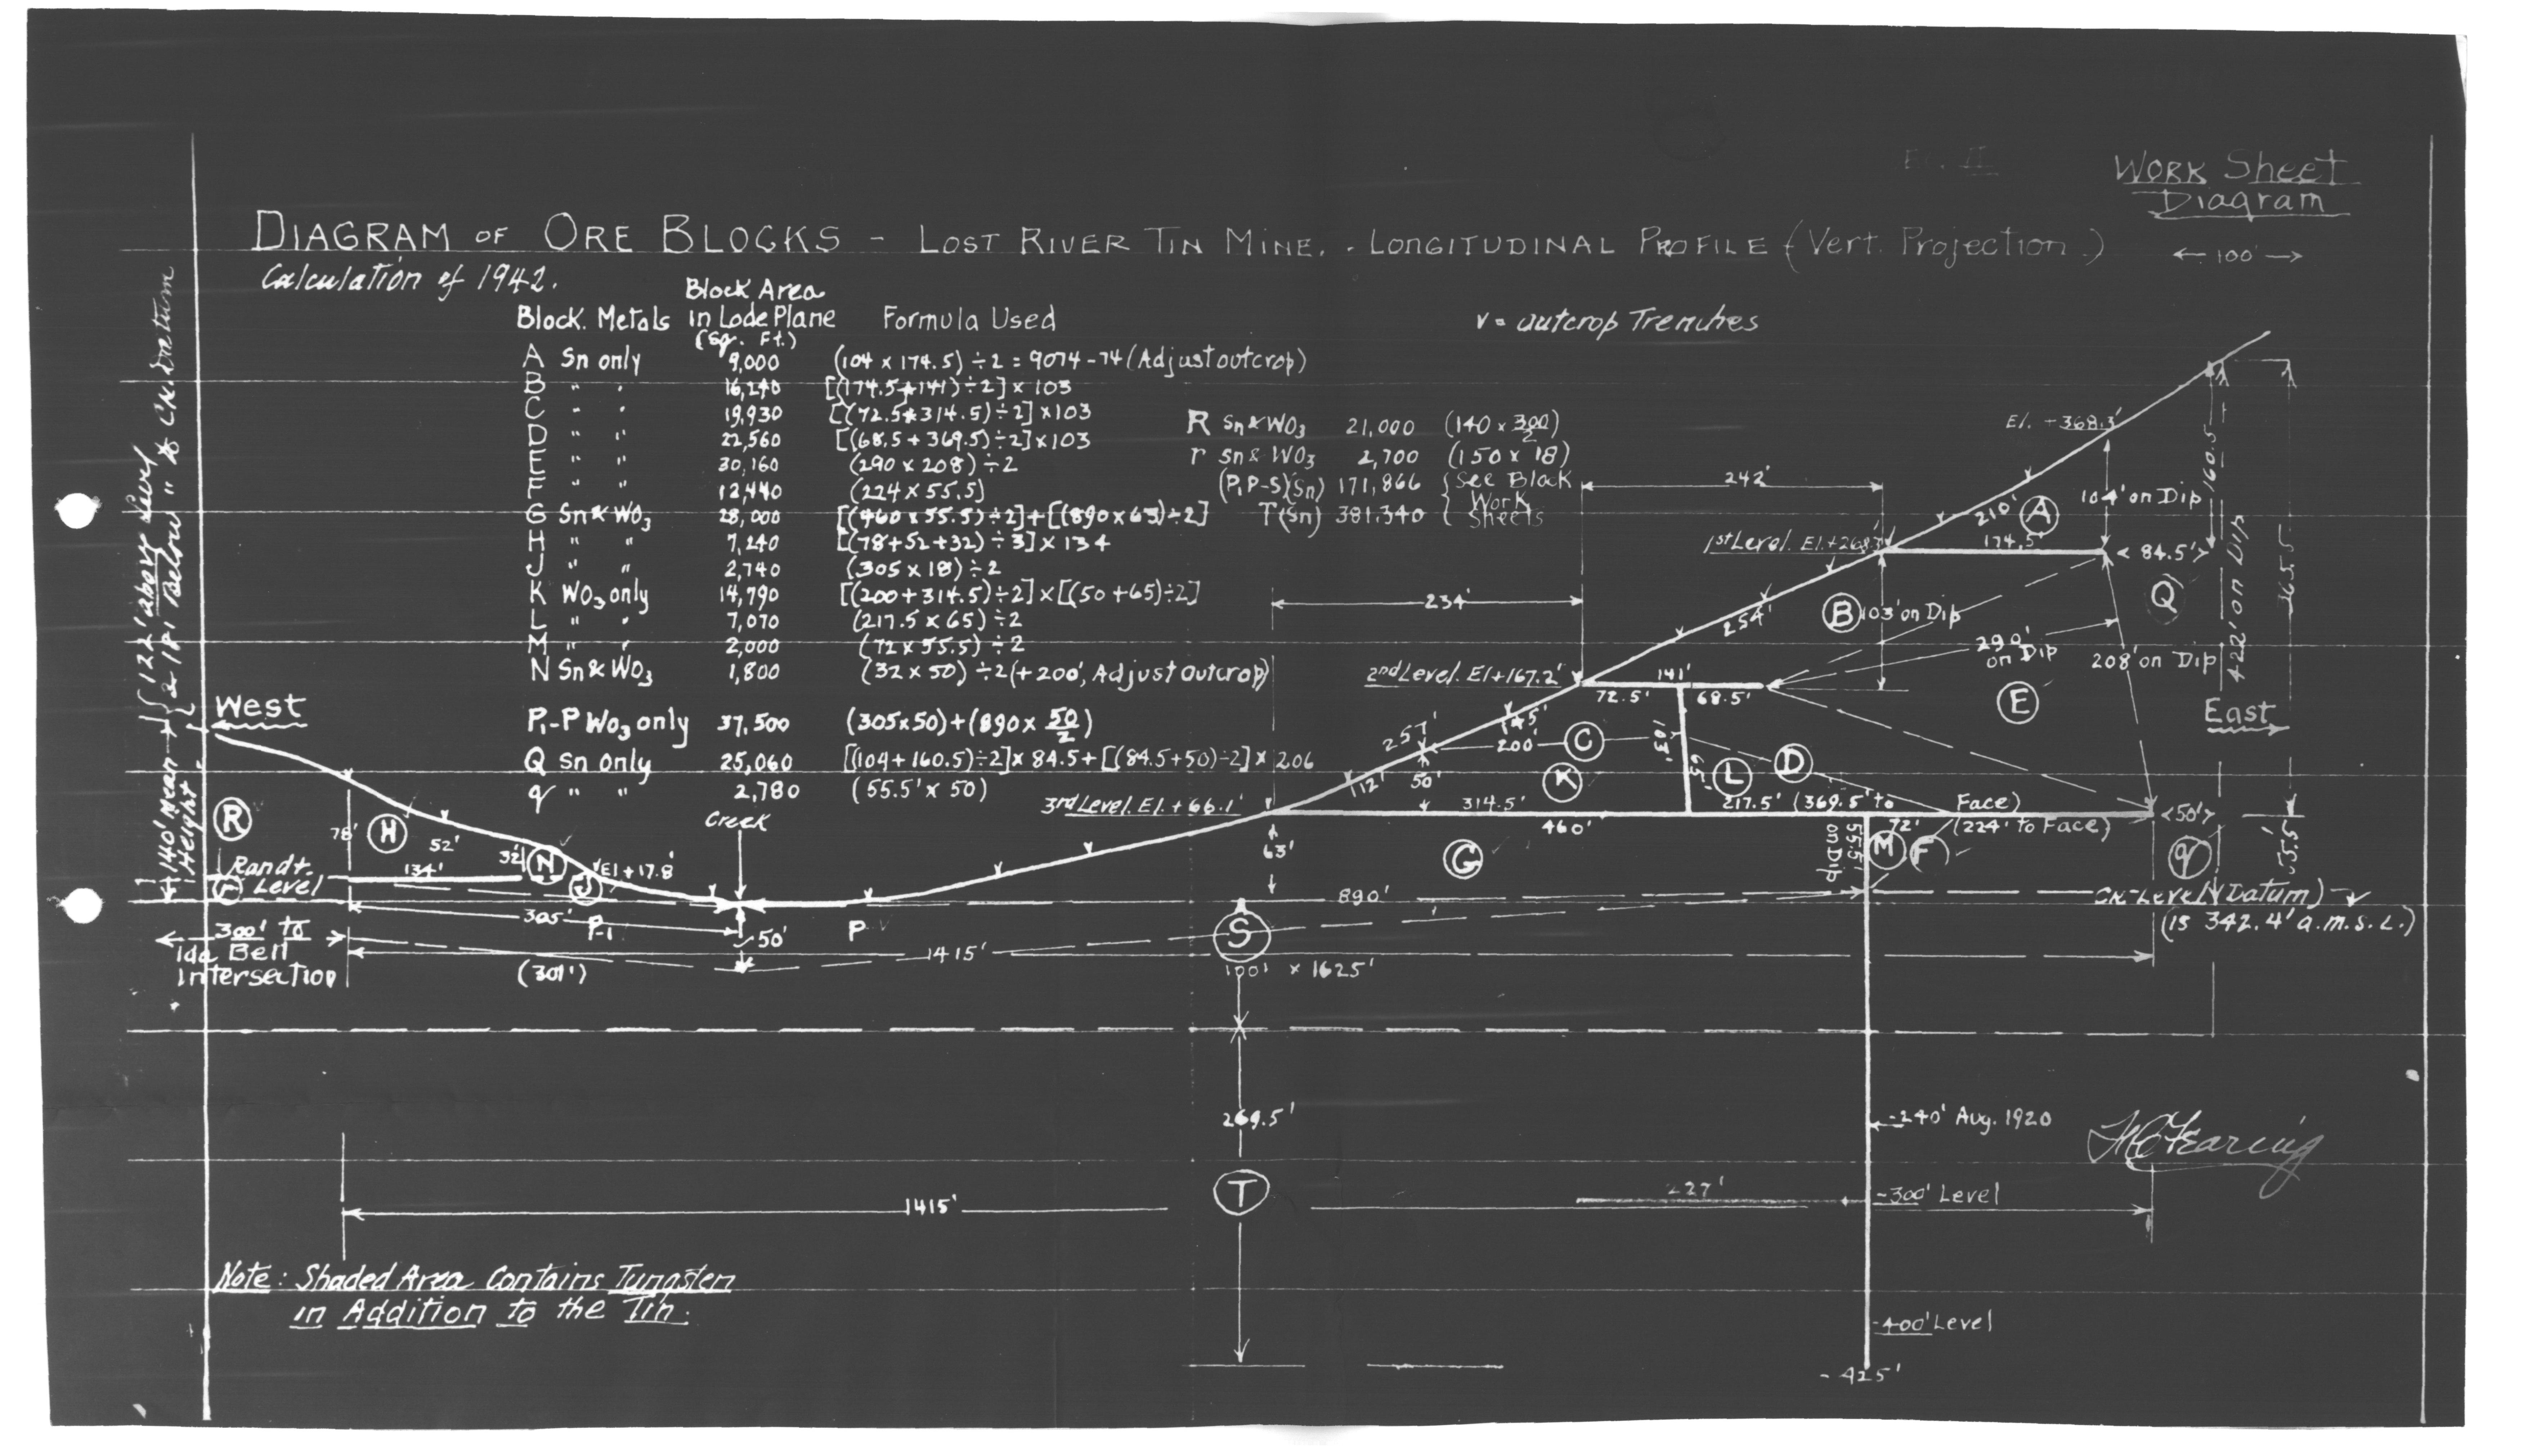 WORK Sheet
Diagram
DIAGRAM OF ORE BLOCKS - LOST RIVER TIN MINE. - LONGITUDINAL PROFILE (Vert. Projection)
← 100' →
Calculation of 1942.
Block. Metals Block Area in Lode Plane (Sq. Ft.) Formula Used
v = outcrop Trenches
A Sn only 9,000 (104 x 174.5) ÷ 2 = 9074 - 74 (Adjust outcrop)
B " " 16,240 [(174.5+141) ÷ 2] x 103
C " " 19,930 [(72.5+314.5) ÷ 2] x 103
D " " 22,560 [(68.5 + 369.5) ÷ 2] x 103
E " " 30,160 (290 x 208) ÷ 2
F " " 12,440 (224 x 55.5)
G Sn & WO3 28,000 [(460 x 55.5) ÷ 2] + [(890 x 63) ÷ 2]
H " " 7,240 [(78+52+32) ÷ 3] x 134
J " " 2,740 (305 x 18) ÷ 2
K WO3 only 14,790 [(200+314.5) ÷ 2] x [(50+65) ÷ 2]
L " " 7,070 (217.5 x 65) ÷ 2
M " " 2,000 (72 x 55.5) ÷ 2
N Sn & WO3 1,800 (32 x 50) ÷ 2 (+ 200', Adjust Outcrop)
P1-P WO3 only 37,500 (305x50) + (890 x 50/2)
Q Sn only 25,060 [(104+160.5) ÷ 2] x 84.5 + [(84.5+50) ÷ 2] x 206
q " " 2,780 (55.5' x 50)
R Sn & WO3 21,000 (140 x 300/2)
r Sn & WO3 2,700 (150 x 18)
(P1P-S)(Sn) 171,866 { See Block
T (Sn) 381,340 { Work Sheets
122' above Level
& 181 Below " to Ck. Datum
140' Mean Height
West
R
78'
H
52'
32'
N
El + 17.8'
J
Randt. Level
r
134'
305'
P-1
300' to
Ida Bell
Intersection
(301')
Creek
50'
P
1415'
El. + 368.3'
160.5'
104' on Dip
A
210'
242'
1st Level. El. + 268.3'
174.5'
< 84.5' >
Q
422' on Dip
365.5'
234'
254'
B
103' on Dip
290'
on Dip
208' on Dip
E
East
2nd Level. El + 167.2'
141'
72.5'
68.5'
257'
145'
200'
C
103'
112'
50'
K
65'
L
D
3rd Level. El. + 66.1'
314.5'
217.5' (369.5' to Face)
460'
72'
(224' to Face)
<50'>
63'
G
55.5' on Dip
M
F
q
55.5'
890'
Ck-Level (Datum)
(is 342.4' a.m.s.L.)
S
100' x 1625'
269.5'
T
1415'
-240' Aug. 1920
227'
-300' Level
-400' Level
-425'
Note: Shaded Area Contains Tungsten
in Addition to the Tin.